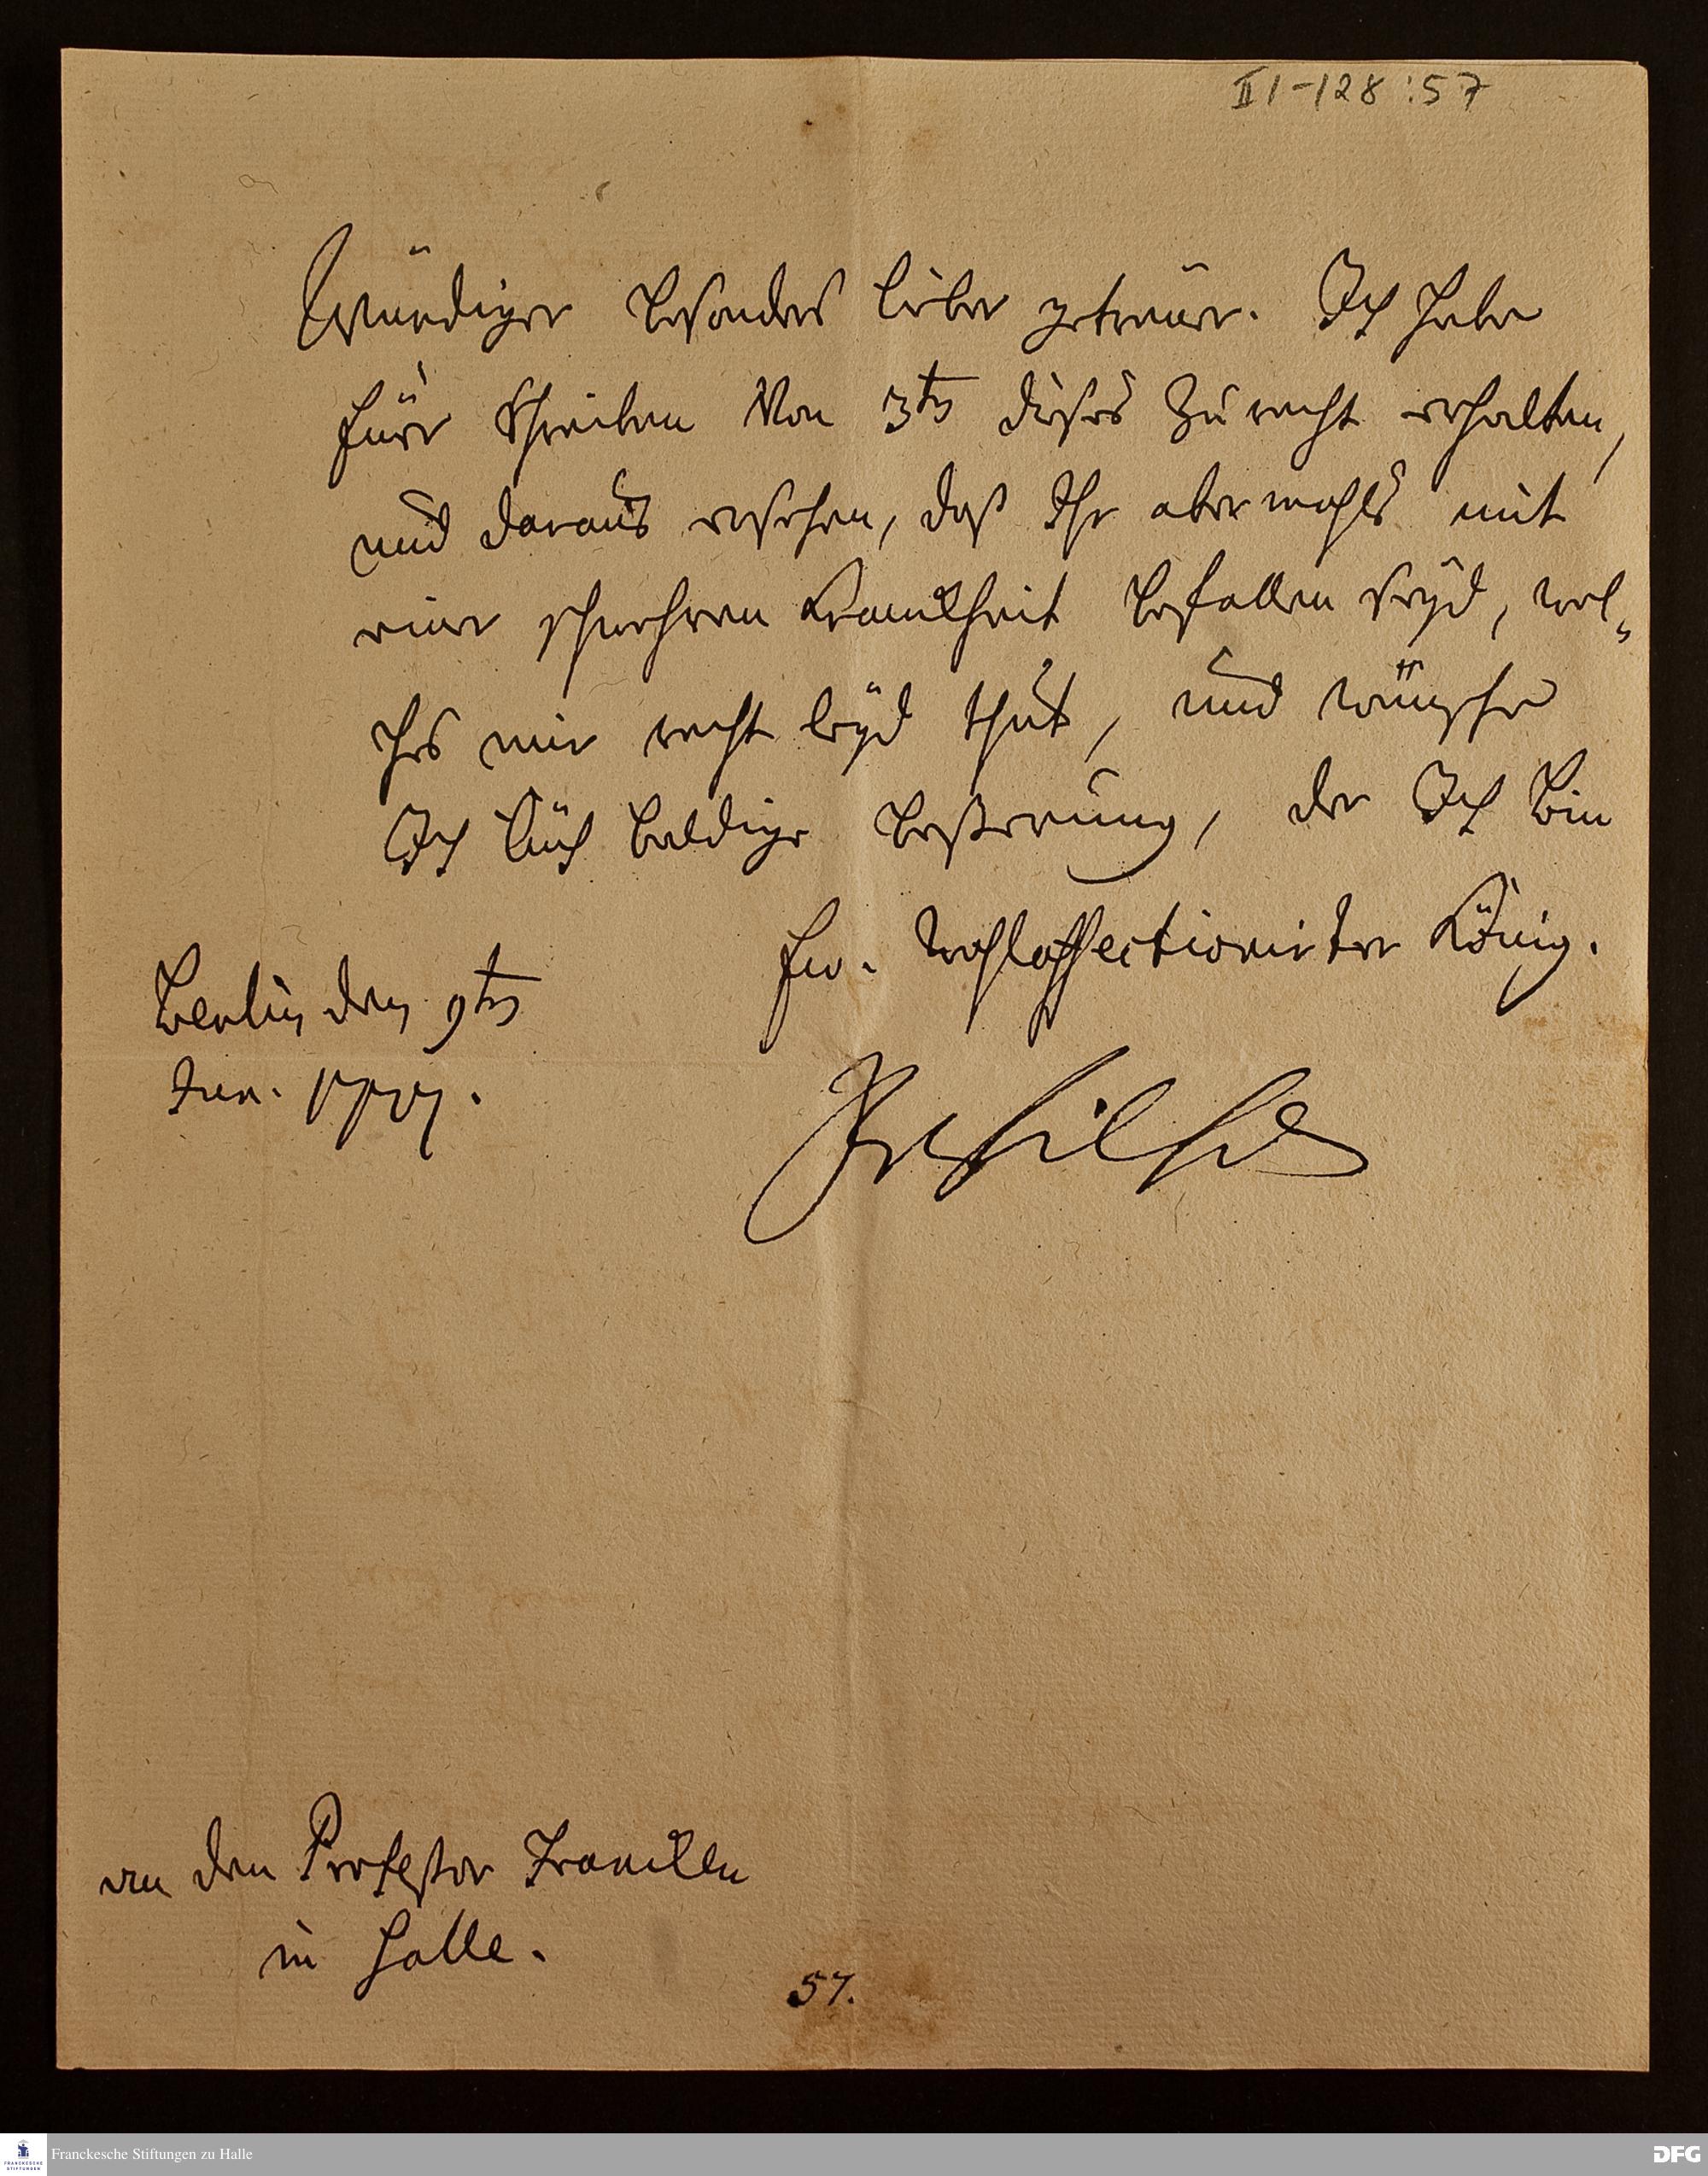 II/-/28:57
Würdiger besonders lieber getreuer. Ich habe
Euer Schreiben Von 3ten dieses zu recht erhalten,
und daraus ersehen, daß Ihr abermahls mit
einer schwehren Kranckheit befallen seyd, wel-
ches mir recht leyd thut, und wünsche
Ich Euch baldige beßerung, der Ich bin
Ew. wohlaffectionirter König.
Berlin den 9ten
FrWilhelm
an den Profeßor Francken
in Halle.
57.
Franckesche Stiftungen zu Halle
DFG